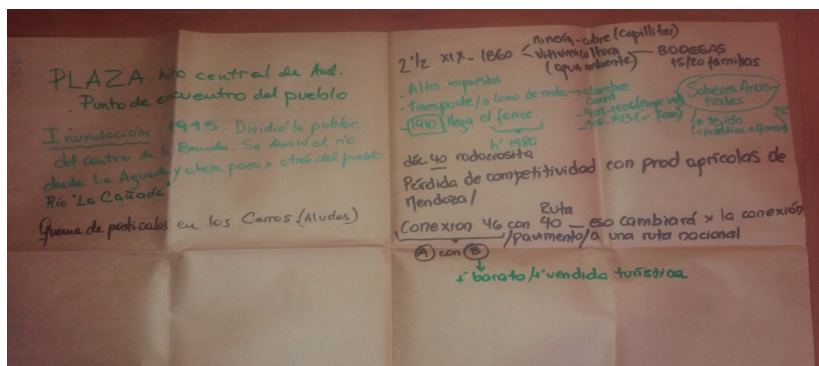 PLAZA: hito central de And.
Punto de encuentro del pueblo
Inundación 1945. Dividió la poblac.
del centro de la Banda. Se desvió el río
desde La Aguada y ahora pasa x atrás del pueblo.
Río "La Cañada"
Quema de pastizales en los Cerros (Aludes)
2° 1/2 XIX - 1860
minería - cobre (Capillitas)
Vitivinicultura
(aguardiente)
BODEGAS
15/20 familias
- Altos impuestos
- transporte/a lomo de mula
alambre
1910 llega el ferroc.
h' 1980
Saberes Ances-
trales
tejido
déc 40 rodocrosita
Pérdida de competitividad con prod agrícolas de
Mendoza/
Conexion 46 con Ruta 40 — eso cambiará x la conexión
/pavimento/a una ruta nacional
A con B
+ barato/+ vendida turística